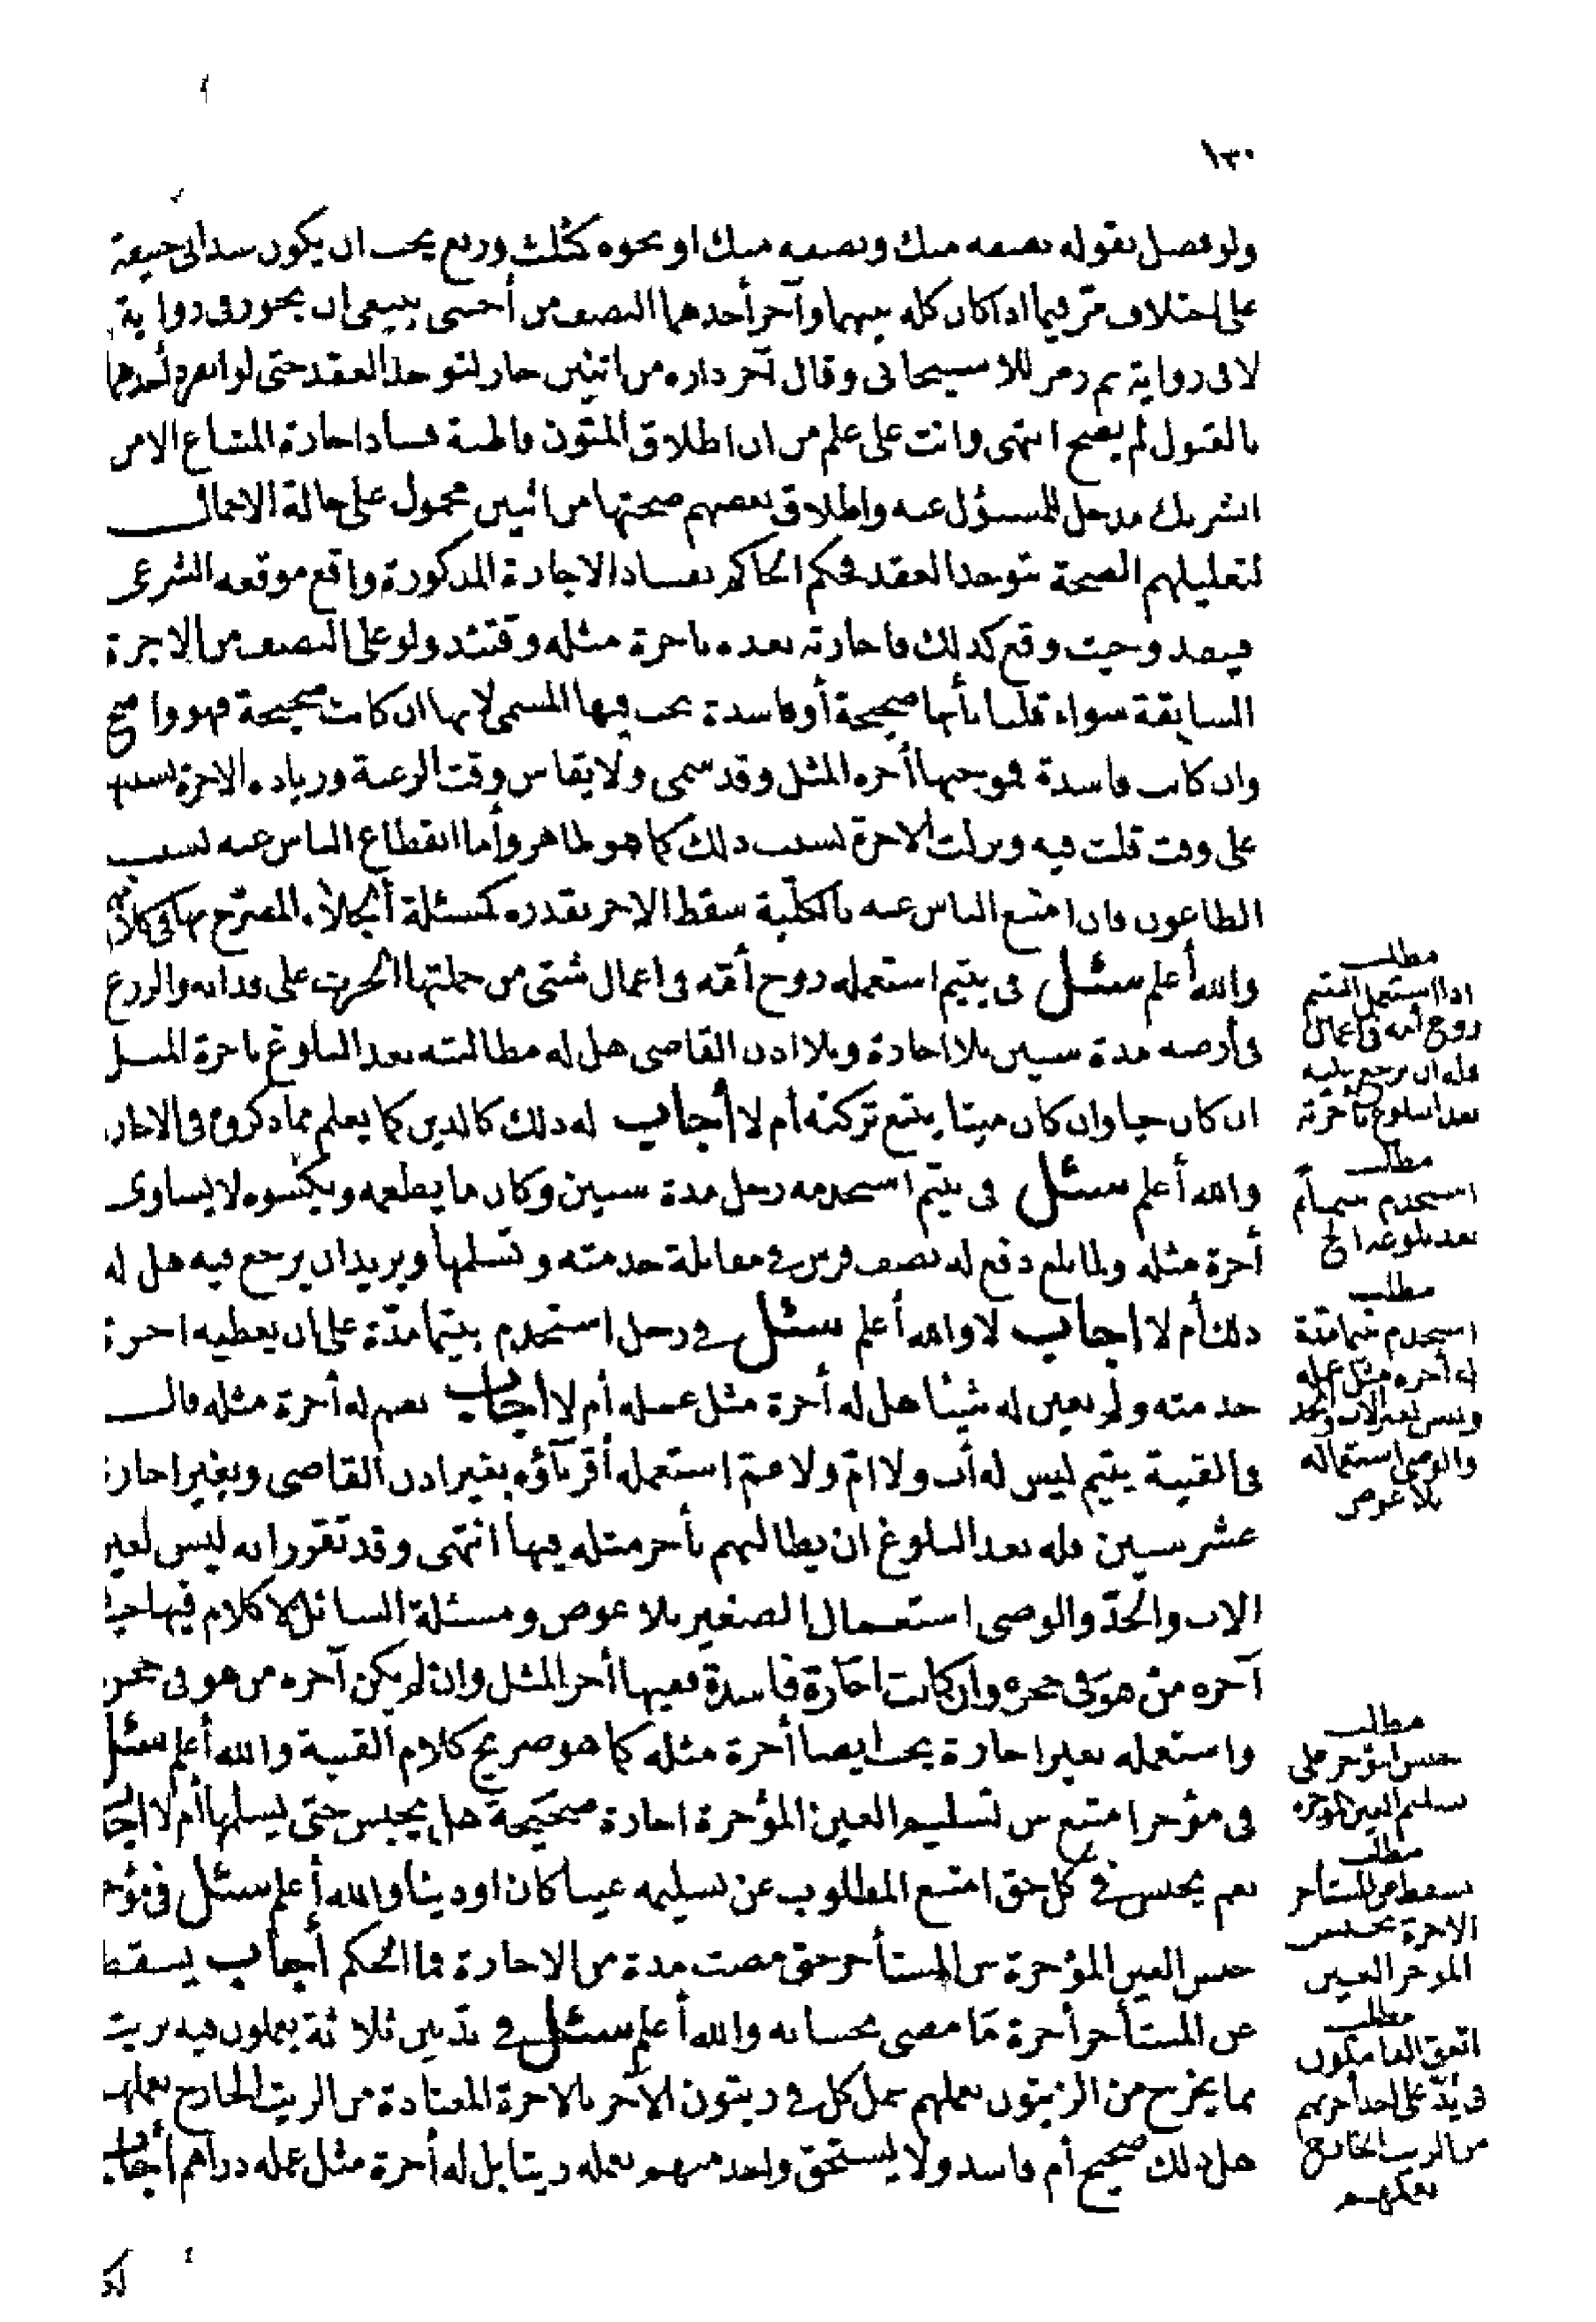 ١٣٠
ولو فصل بقوله نصفه منك ونصفه منك او نحوه كثلث وربع يجب ان يكون عند أبى حنيفة
على اختلاف مرّ فيما اذا كان كله بينهما وآجر أحدهما النصف من أجنبى ينبغى ان يجوز فى رواية
لا فى رواية ثم رمز للاسبيجابى وقال آجر داره من اثنين جاز لتوحد العقد حتى لو انفرد أحدهما
بالقبول لم يصح انتهى وانت على علم من ان اطلاق المتون قاطبة فساد اجارة المشاع الا من
الشريك مدخل للمسؤل عنه واطلاق بعضهم صحتها من اثنين محمول على حالة الاجمال
لتعليلهم الصحة بتوحد العقد فحكم الحاكم بفساد الاجارة المذكورة واقع موقعه الشرعى
فينفذ وحيث وقع كذلك فاجارته بعده باجرة مثله وقتئذ ولو على النصف من الاجرة
السابقة سواء قلنا بأنها صحيحة أو فاسدة يجب فيها المسمى لانها ان كانت صحيحة فهو واضح
وان كانت فاسدة فموجبها أجرة المثل وقد سمى ولا يقاس وقت الرغبة وزيادة الاجرة بسببها
على وقت قلت فيه ونزلت الاجرة بسبب ذلك كما هو ظاهر وأما انقطاع الناس عنه بسبب
الطاعون فان امتنع الناس عنه بالكلية سقط الاجر بقدره كمسئلة الجلاء المصرّح بها فى كلامهم
والله أعلم سئل فى يتيم استعمله زوج أمّه فى اعمال شتى من جملتها الحرث على فدانه والزرع
فى أرضه مدة سنين بلا اجارة وبلا اذن القاضى هل له مطالبته بعد البلوغ باجرة المثل
ان كان حيا وان كان ميتا يتبع تركته أم لا أجاب له ذلك كالدين كما يعلم مما ذكروه فى الاجارة
والله أعلم سئل فى يتيم استخدمه رجل مدة سنين وكان ما يطعمه ويكسوه لا يساوى
أجرة مثله ولما بلغ دفع له نصف فرس فى مقابلة خدمته وتسلمها ويريد ان يرجع فيه هل له
ذلك أم لا اجاب لا والله أعلم سئل فى رجل استخدم يتيما مدّة على ان يعطيه اجرة
خدمته ولم يعين له شيئا هل له أجرة مثل عمله أم لا أجاب نعم له أجرة مثله قال
فى القنية يتيم ليس له أب ولا امّ ولا عمّ استعمله أقرباؤه بغير اذن القاضى وبغير اجارة
عشر سنين فله بعد البلوغ ان يطالبهم بأجر مثله فيها انتهى وقد تقرر انه ليس لغير
الاب والجدّ والوصى استعمال الصغير بلا عوض ومسئلة السائل لا كلام فيها حيث
آجره من هو فى حجره وان كانت اجارة فاسدة ففيها أجر المثل وان لم يكن آجره من هو فى حجره
واستعمله بغير اجارة يجب ايضا أجرة مثله كما هو صريح كلام القنية والله أعلم سئل
فى مؤجر امتنع من تسليم العين المؤجرة اجارة صحيحة هل يحبس حتى يسلمها أم لا اجاب
نعم يحبس فى كل حق امتنع المطلوب عن تسليمه عينا كان او دينا والله أعلم سئل فى مؤجر
حبس العين المؤجرة من المستأجر حتى مضت مدة من الاجارة فما الحكم أجاب يسقط
عن المستأجر أجرة ما مضى بحسابه والله أعلم سئل فى بدّ بين ثلاثة يعملون فيه بزيت
مما يخرج من الزيتون بعملهم يعمل كل فى زيتون الآخر بالاجرة المعتادة من الزيت الخارج بعملهم
هل ذلك صحيح أم فاسد ولا يستحق واحد منهم بعمله زيتا بل له أجرة مثل عمله دراهم أجاب
مطلب
اذا استعمل اليتيم
زوج أمه فى اعمال
فله ان يرجع عليه
بعد البلوغ باجرته
مطلب
استخدم يتيما ثم
بعد بلوغه الخ
مطلب
استخدم يتيما مدّة
له أجرة مثل عمله
وليس لغير الاب والجد
والوصى استعماله
بلا عوض
مطلب
حبس المؤجر على
تسليم العين المؤجرة
مطلب
يسقط عن المستأجر
الاجرة بحبس
المؤجر العين
مطلب
اتفق العاملون
فى بدّ على اخذ أجرتهم
من الزيت الخارج
بعملهم